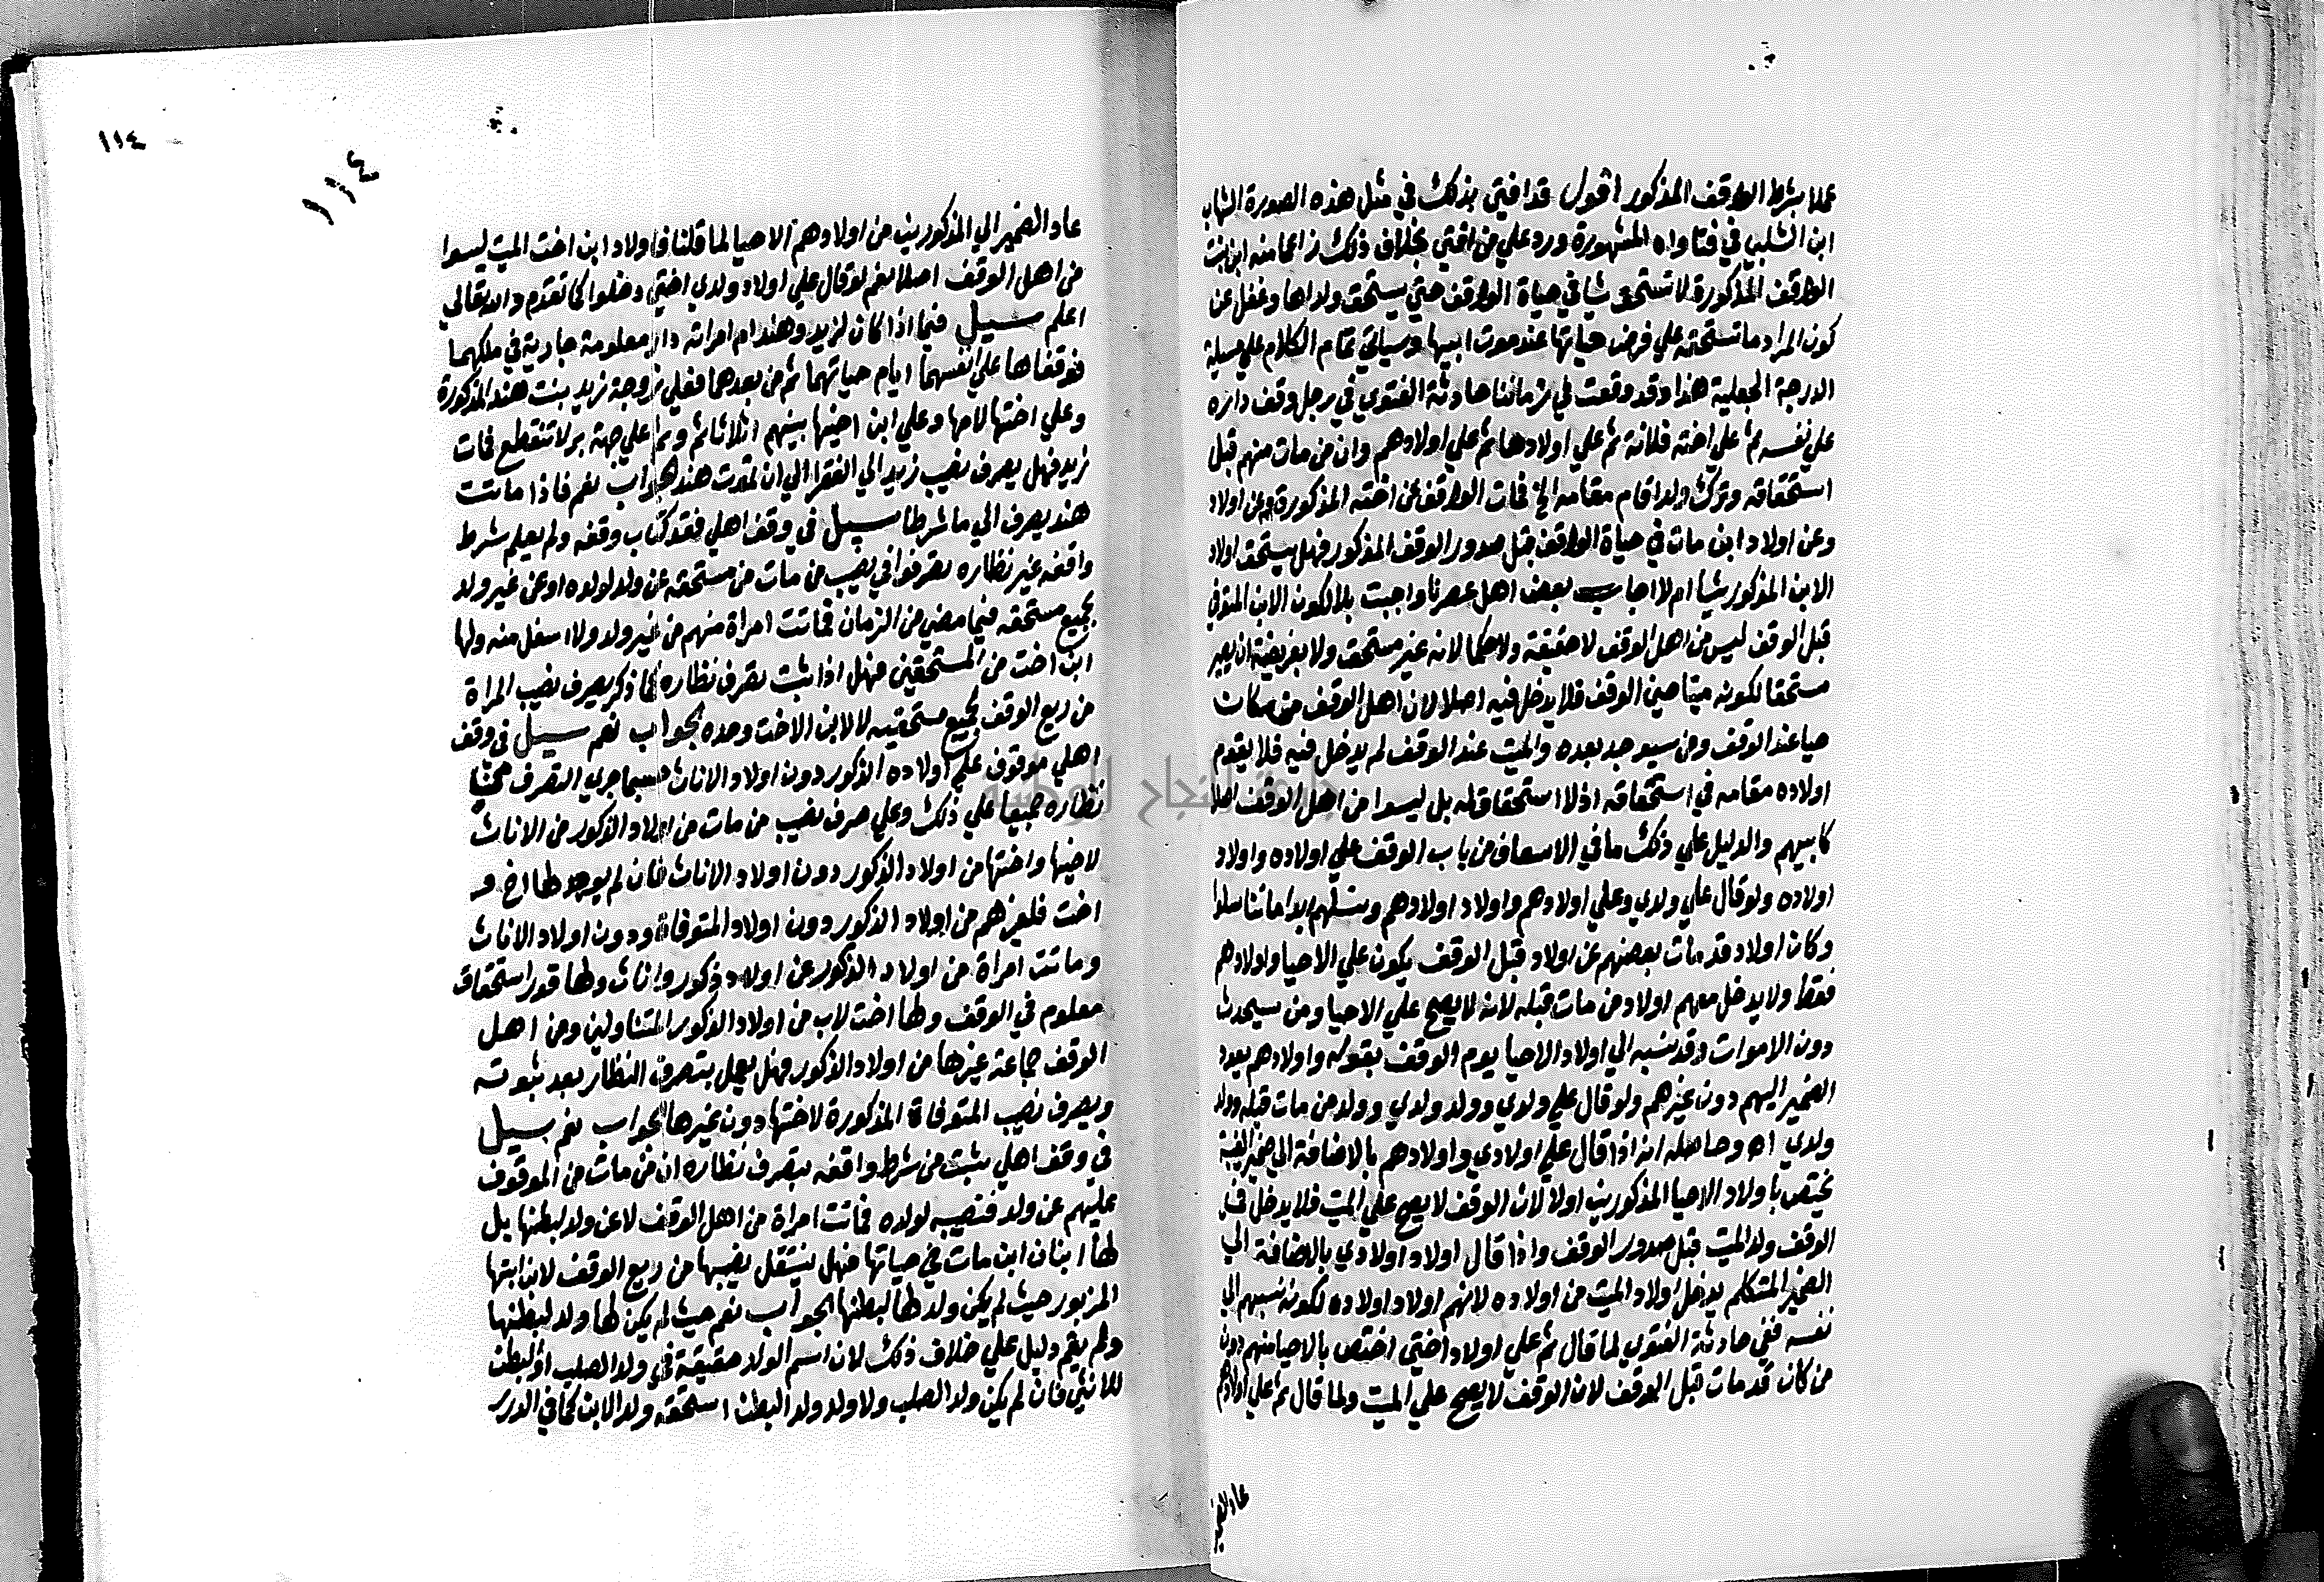 عملا بشرط الواقف المذكور اقول قد افتي بذلك في مثل هذه الصورة الشهاب
ابن الشلبي في فتاواه المشهورة ورد علي من افتي بخلاف ذلك زاعما منه ان بنت
الواقف المذكورة لا تستحق شيا في حياة الواقف حتي يستحق ولداها وغفل عن
كون المراد ما تستحقه علي فرض حياتها عند موت ابيها وسياتي تمام الكلام علي مسيلة
الدرجة الجعلية هذا وقد وقعت في زماننا حادثة الفتوي في رجل وقف داره
علي نفسه ثم علي اخته فلانة ثم علي اولادها ثم علي اولادهم وان من مات منهم قبل
استحقاقه وترك ولدا قام مقامه الخ فمات الواقف عن اخته المذكورة وعن اولاد
وعن اولاد ابن مات في حياة الواقف قبل صدور الوقف المذكور فهل يستحق اولاد
الابن المذكور شيا ام لا اجاب بعض اهل عصرنا واجبت بلا لكون الابن المتوفي
قبل الوقف ليس من اهل الوقف لا حقيقة ولا حكما لانه غير مستحق ولا بفرضية ان يصير
مستحقا لكونه ميتا حين الوقف فلا يدخل فيه اصلا لان اهل الوقف من كان
حيا عند الوقف ومن سيوجد بعده والميت عند الوقف لم يدخل فيه فلا يقوم
اولاده مقامه في استحقاقه اذ لا استحقاق له بل ليسوا من اهل الوقف اصلا
كابيهم والدليل علي ذلك ما في الاسعاف من باب الوقف علي اولاده واولاد
اولاده ولو قال علي ولدي وعلي اولادهم واولاد اولادهم ونسلهم ابدا ما تناسلوا
وكان اولاد قد مات بعضهم عن اولاد قبل الوقف يكون علي الاحيا واولادهم
فقط ولا يدخل معهم اولاد من مات قبله لانه لا يصح علي الاحيا ومن سيحدث
دون الاموات وقد نسبه الي اولاد الاحيا يوم الوقف بقوله واولادهم بعود
الضمير اليهم دون غيرهم ولو قال علي ولدي وولد ولدي وولد من مات قبله وولد
ولدي اه وحاصله انه اذا قال علي اولادي واولادهم بالاضافة الي ضمير الغيبة
يختص باولاد الاحيا المذكورين اولا لان الوقف لا يصح علي الميت فلا يدخل في
الوقف ولد الميت قبل صدور الوقف واذا قال اولاد اولادي بالاضافة الي
الضمير المتكلم يدخل اولاد الميت من اولاده لانهم اولاد اولاده لكونه نسبهم الي
نفسه ففي حادثة الفتوي لما قال ثم علي اولاد اختي اختص بالاحيا منهم دون
من كان قد مات قبل الوقف لان الوقف لا يصح علي الميت ولما قال ثم علي اولادهم
عاد الضمير
١١٤
١١٤
عاد الضمير الي المذكورين من اولادهم الاحيا لما قلنا فاولاد ابن اخت الميت ليسوا
من اهل الوقف اصلا نعم لو قال علي اولاد ولدي اختي دخلوا كما تقدم والله تعالي
اعلم سيل فيما اذا كان لزيد وهند ام امراته دار معلومة جارية في ملكهما
فوقفاها علي انفسهما ايام حياتهما ثم من بعدهما فعلي زوجة زيد بنت هند المذكورة
وعلي اختها لامها وعلي ابن اخيها بينهم اثلاثا ثم وثم علي جهة بر لا تنقطع فمات
زيد فهل يصرف نصيب زيد الي الفقرا الي ان تموت هند الجواب نعم فاذا ماتت
هند يصرف الي ما شرطا سيل في وقف اهلي فقد كتاب وقفه ولم يعلم شرط
واقفه غير نظاره تصرفوا في نصيب من مات من مستحقه عن ولد لولده او عن غير ولد
لجميع مستحقه فيما مضي من الزمان فماتت امراة منهم من غير ولد ولا اسفل منه ولها
ابن اخت من المستحقين فهل اذا ثبت تصرف نظاره كما ذكر يصرف نصيب المراة
من ريع الوقف لجميع مستحقيه لا لابن الاخت وحده الجواب نعم سيل في وقف
اهلي موقوف علي اولاده الذكور دون اولاد الاناث حسبما جري التصرف من
نظاره جميعا علي ذلك وعلي صرف نصيب من مات من اولاد الذكور من الاناث
لاخيها واختها من اولاد الذكور دون اولاد الاناث فان لم يوجد لها اخ و
اخت فلغيرهم من اولاد الذكور دون اولاد المتوفاة ودون اولاد الاناث
وماتت امراة من اولاد الذكور عن اولاد ذكور واناث ولها قدر استحقاق
معلوم في الوقف ولها اخت لاب من اولاد الذكور المتناولين ومن اهل
الوقف جماعة غيرها من اولاد الذكور فهل يعمل بتصرف النظار بعد ثبوته
ويصرف نصيب المتوفاة المذكورة لاختها دون غيرها الجواب نعم سيل
في وقف اهلي ثبت من شرط واقفه بتصرف نظاره ان من مات من الموقوف
عليهم عن ولد فنصيبه لولده فماتت امراة من اهل الوقف لا عن ولد لبطنها بل
لها ابنان ابن مات في حياتها فهل ينتقل نصيبها من ريع الوقف لابن ابنها
المزبور حيث لم يكن ولد لها لبطنها الجواب نعم حيث لم يكن لها ولد لبطنها
ولم يقم دليل علي خلاف ذلك لان اسم الولد حقيقة في ولد الصلب او لبطن
للانثي فان لم يكن ولد الصلب ولا ولد ولد البطن استحقه ولد الابن كما في الدرر
جامعة النجاح الوطنية